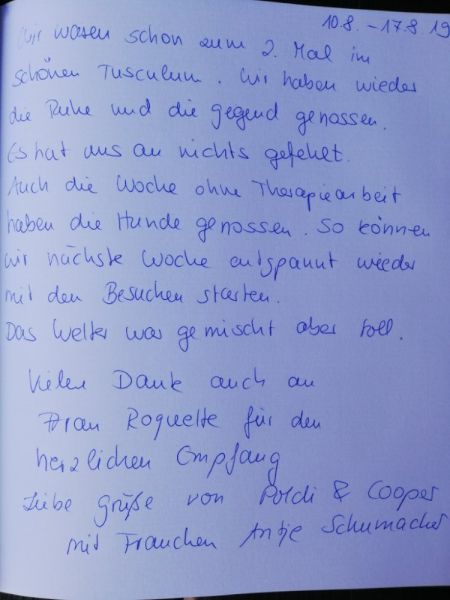 10.8. - 17.8.19
Wir waren schon zum 2. Mal im
schönen Tusculum. Wir haben wieder
die Ruhe und die Gegend genossen.
Es hat uns an nichts gefehlt.
Auch die Woche ohne Therapiearbeit
haben die Hunde genossen. So können
wir nächste Woche entspannt wieder
mit den Besuchen starten.
Das Wetter war gemischt aber toll.
Vielen Dank auch an
Frau Roquette für den
herzlichen Empfang
Liebe Grüße von Poldi & Cooper
mit Frauchen Antje Schumacher